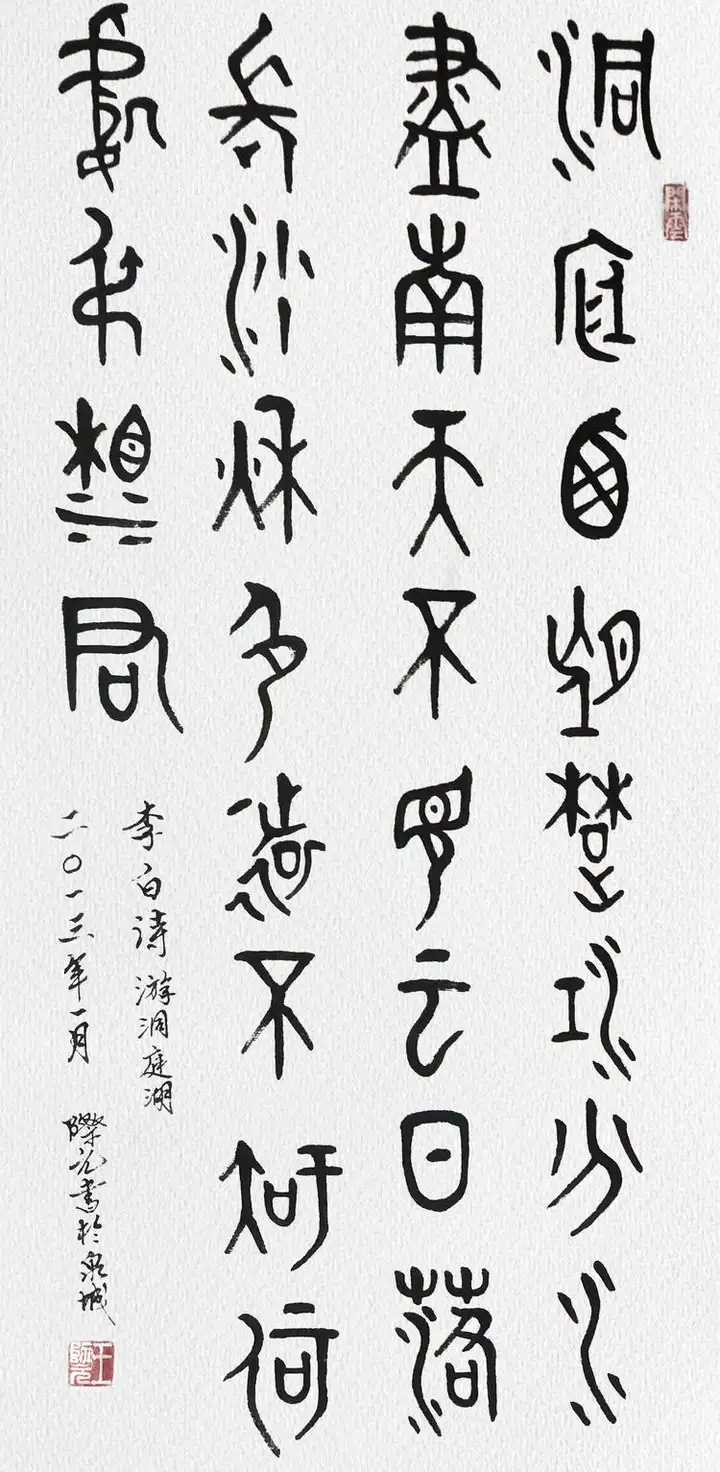 洞庭西望楚江分水
盡南天不見云日落
長沙秋色遠不知何
處弔湘君
李白诗游洞庭湖
二〇一三年一月 際元書於泉城
閑雲